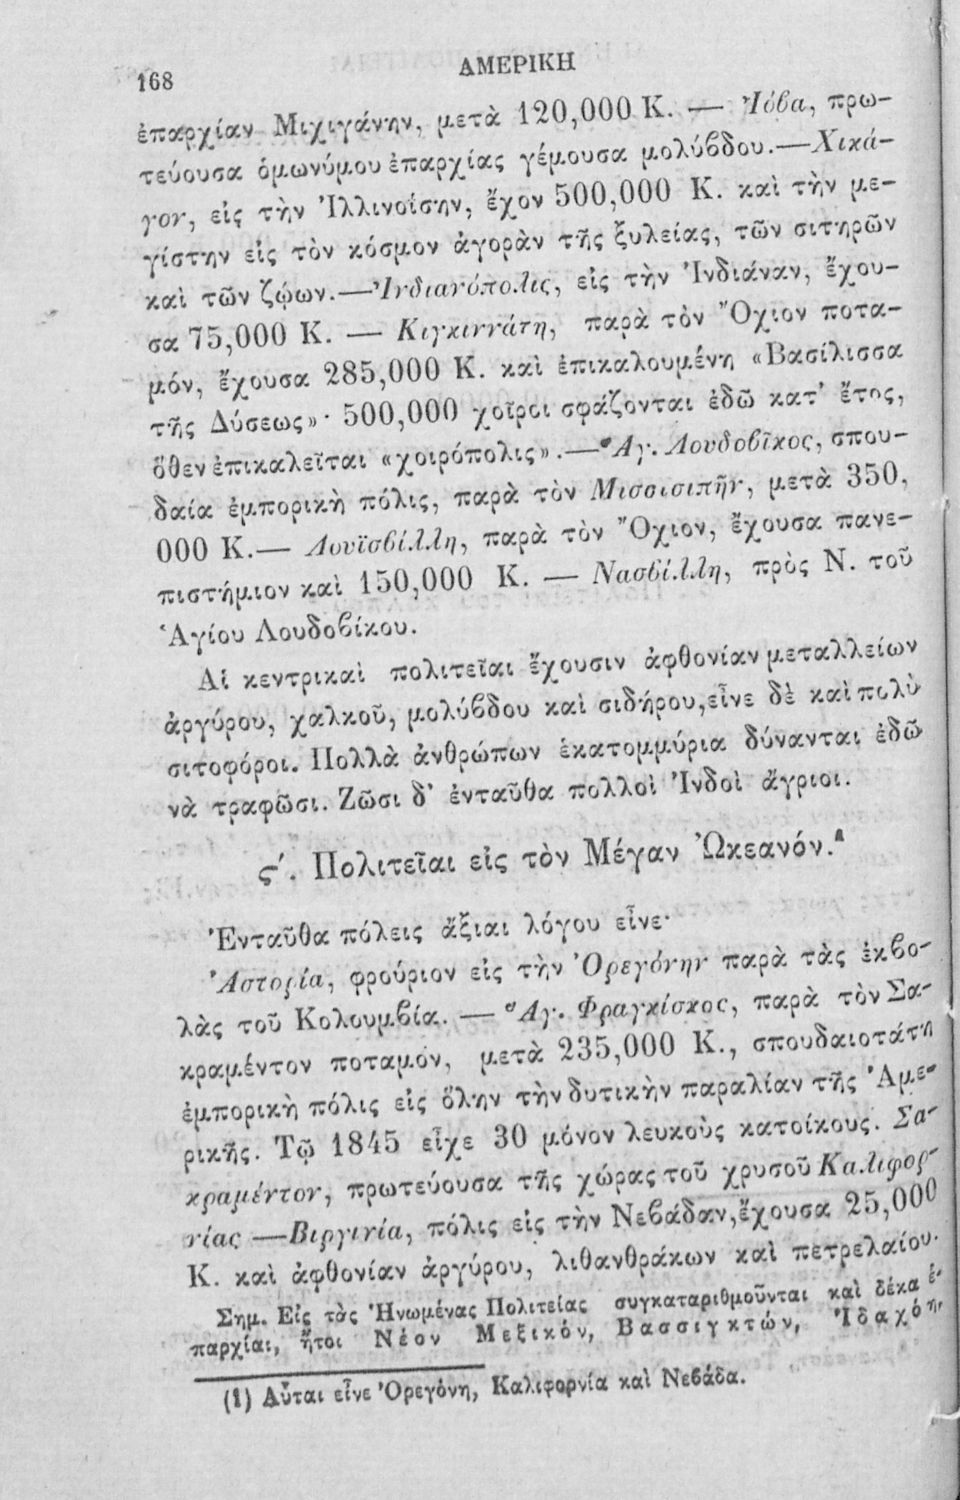 168
ΑΜΕΡΙΚΗ
ἐπαρχίαν Μιχιγάνην, μετὰ 120,000 Κ. — Ἰόβα, πρω-
τεύουσα ὁμωνύμου ἐπαρχίας γέμουσα μολύβδου.—Χικά-
γον, εἰς τὴν Ἰλλινοίσην, ἔχον 500,000 Κ. καὶ τὴν με-
γίστην εἰς τὸν κόσμον ἀγορὰν τῆς ξυλείας, τῶν σιτηρῶν
καὶ τῶν ζῴων.—Ἰνδιανόπολις, εἰς τὴν Ἰνδιάναν, ἔχου-
σα 75,000 Κ. — Κιγκιννάτη, παρὰ τὸν Ὄχιον ποτα-
μόν, ἔχουσα 285,000 Κ. καὶ ἐπικαλουμένη «Βασίλισσα
τῆς Δύσεως»· 500,000 χοῖροι σφάζονται ἐδῶ κατ' ἔτος,
ὅθεν ἐπικαλεῖται «χοιρόπολις».—Ἅγ. Λουδοβῖκος, σπου-
δαία ἐμπορικὴ πόλις, παρὰ τὸν Μισσισιπῆν, μετὰ 350,
000 Κ.— Λουϊσβίλλη, παρὰ τὸν Ὄχιον, ἔχουσα πανε-
πιστήμιον καὶ 150,000 Κ. — Νασβίλλη, πρὸς Ν. τοῦ
Ἁγίου Λουδοβίκου.
Αἱ κεντρικαὶ πολιτεῖαι ἔχουσιν ἀφθονίαν μεταλλείων
ἀργύρου, χαλκοῦ, μολύβδου καὶ σιδήρου, εἶνε δὲ καὶ πολὺ
σιτοφόροι. Πολλὰ ἀνθρώπων ἑκατομμύρια δύνανται ἐδῶ
νὰ τραφῶσι. Ζῶσι δ' ἐνταῦθα πολλοὶ Ἰνδοὶ ἄγριοι.
ς'. Πολιτεῖαι εἰς τὸν Μέγαν Ὠκεανόν.¹
Ἐνταῦθα πόλεις ἄξιαι λόγου εἶνε·
Ἀστορία, φρούριον εἰς τὴν Ὀρεγόνην παρὰ τὰς ἐκβο-
λὰς τοῦ Κολουμβία. — Ἅγ. Φραγκίσκος, παρὰ τὸν Σα-
κραμέντον ποταμόν, μετὰ 235,000 Κ., σπουδαιοτάτη
ἐμπορικὴ πόλις εἰς ὅλην τὴν δυτικὴν παραλίαν τῆς Ἀμε-
ρικῆς. Τῷ 1845 εἶχε 30 μόνον λευκοὺς κατοίκους. Σα-
κραμέντον, πρωτεύουσα τῆς χώρας τοῦ χρυσοῦ Καλιφορ-
νίας —Βιργινία, πόλις εἰς τὴν Νεβάδαν, ἔχουσα 25,000
Κ. καὶ ἀφθονίαν ἀργύρου, λιθανθράκων καὶ πετρελαίου.
Σημ. Εἰς τὰς Ἡνωμένας Πολιτείας συγκαταριθμοῦνται καὶ δέκα ἐ-
παρχίαι, ἤτοι Νέον Μεξικόν, Βασσιγκτών, Ἰδαχόη,
(1) Αὗται εἶνε Ὀρεγόνη, Καλιφορνία καὶ Νεβάδα.